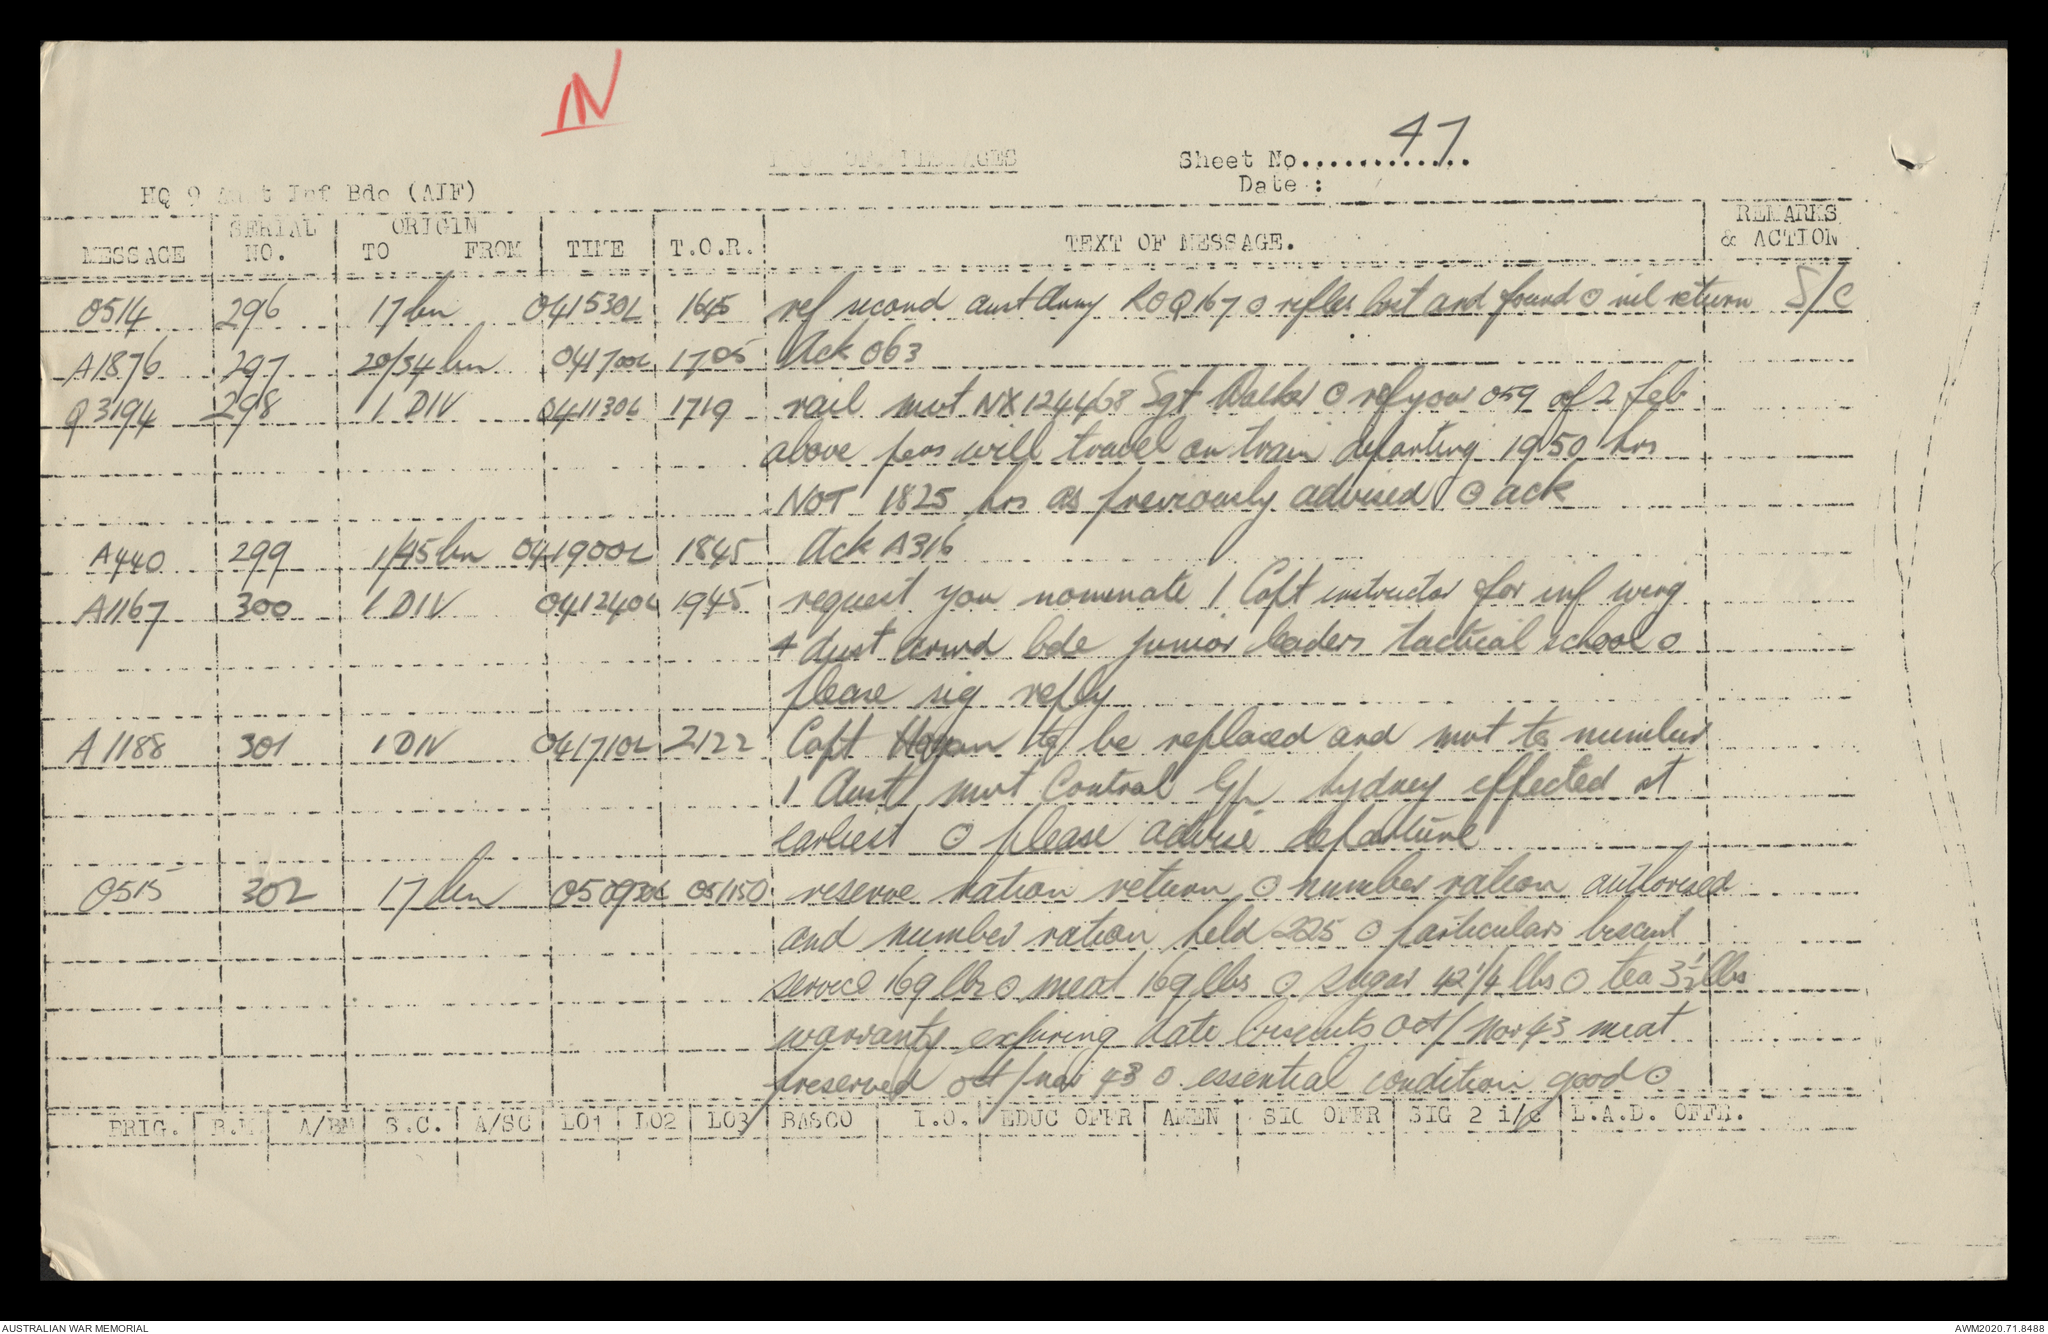 IN
LOG OF MESSAGES
Sheet No............. 47
Date :
HQ 9 Aust Inf Bde (AIF)
MESSAGE SERIAL NO. ORIGIN TO FROM TIME T.O.R. TEXT OF MESSAGE. REMARKS & ACTION
O514 296 17 bn 041530L 1645 ref second aust Army ROQ167 o rifles lost and found o nil return S/C
A1876 297 20/34 bn 041700L 1705 Ack O63
Q3194 298 1 DIV 041130L 1719 rail mvt NX124468 Sgt Walker o ref your O59 of 2 feb
above pers will travel on train departing 1950 hrs
NOT 1825 hrs as previously advised o ack
A440 299 1/45 bn 041900L 1845 Ack A316
A1167 300 1 DIV 041240L 1945 request you nominate 1 Capt instructor for inf wing
4 Aust armd bde junior leaders tactical school o
please sig reply
A1188 301 1 DIV 041710L 2122 Capt to be replaced and mvt to number
1 Aust mvt Control Gp Sydney effected at
earliest o please advise departure
O515 302 17 bn 050930L 051150 reserve ration return o number ration authorised
and number ration held 225 o particulars biscuit
service 169 lbs o meat 169 lbs o sugar 42 1/4 lbs o tea 3 1/2 lbs
warranty expiring date biscuits Oct/Nov 43 meat
preserved oct/nov 43 o essential condition good o
BRIG. B.M. A/BM S.C. A/SC LO1 LO2 LO3 BASCO I.O. EDUC OFFR AMEN SIG OFFR SIG 2 i/c L.A.D. OFFR.
AUSTRALIAN WAR MEMORIAL
AWM2020.71.8488